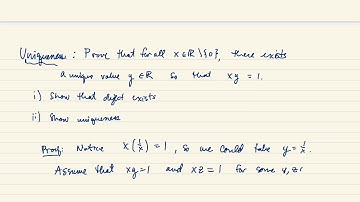 Uniqueness: Prove that for all x ∈ ℝ \ {0}, there exists
a unique value y ∈ ℝ so that xy = 1.
i) Show that object exists
ii) Show uniqueness
Proof: Notice x(1/x) = 1, so we could take y = 1/x.
Assume that xy = 1 and xz = 1 for some y, z